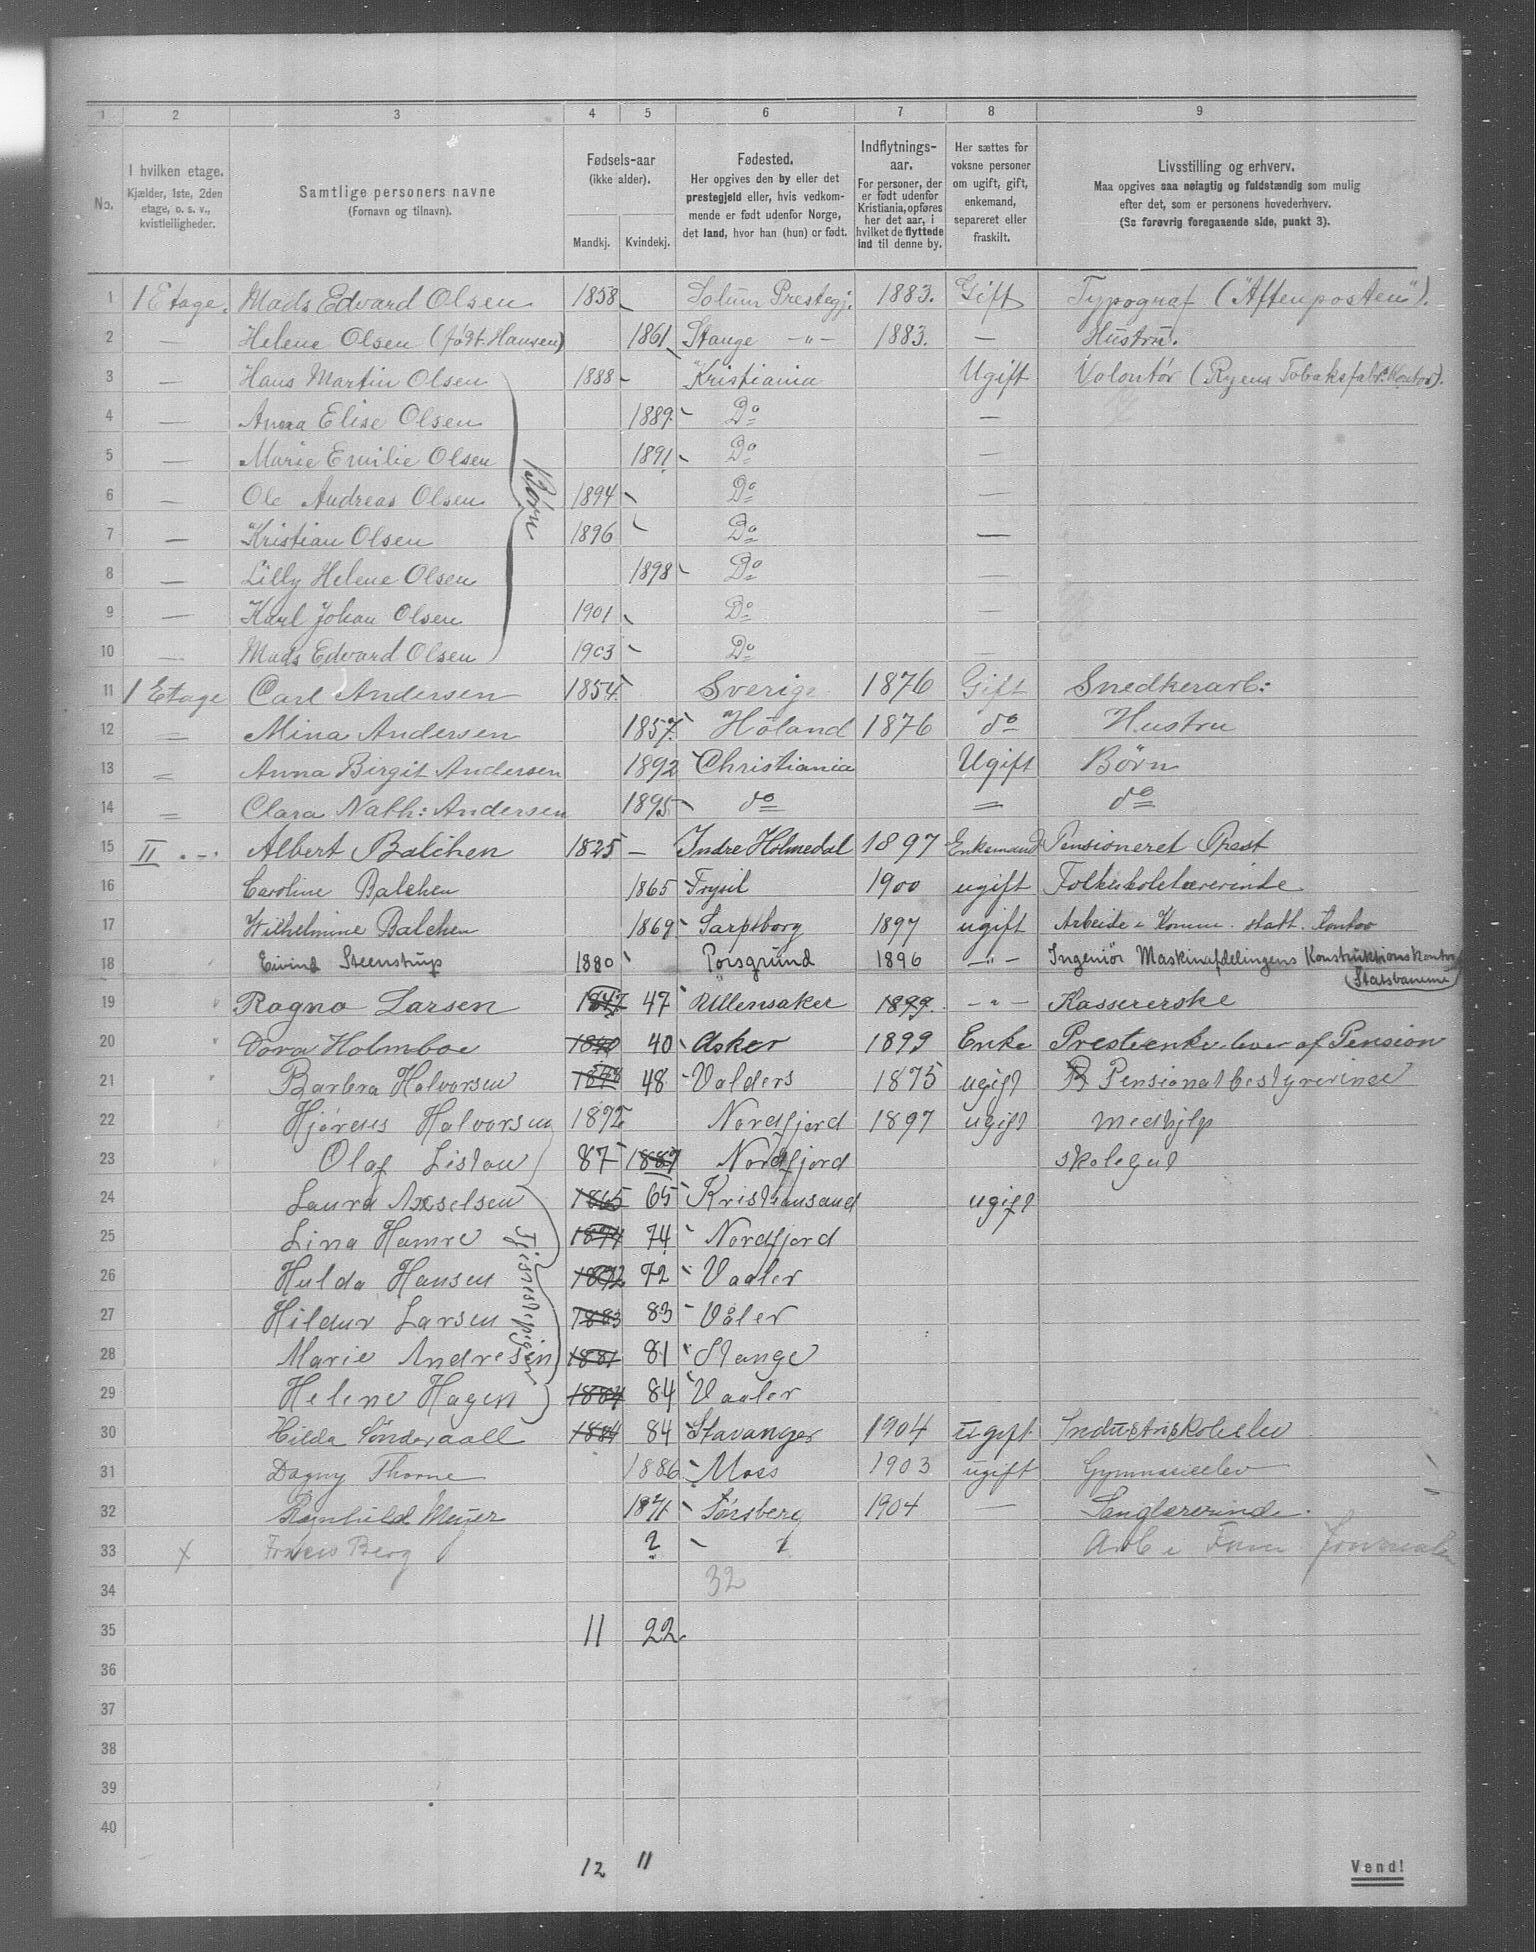 1 2 3 4 5 6 7 8 9
No. I hvilken etage. Kjælder, 1ste, 2den etage, o. s. v., kvistleiligheder.
Samtlige personers navne (Fornavn og tilnavn).
Fødsels-aar (ikke alder). Mandkj. Kvindekj.
Fødested. Her opgives den by eller det prestegjeld eller, hvis vedkommende er født udenfor Norge, det land, hvor han (hun) er født.
Indflytnings-aar. For personer, der er født udenfor Kristiania, opføres her det aar, i hvilket de flyttede ind til denne by.
Her sættes for voksne personer om ugift, gift, enkemand, separeret eller fraskilt.
Livsstilling og erhverv. Maa opgives saa nøiagtig og fuldstændig som mulig efter det, som er personens hovederhverv. (Se forøvrig foregaaende side, punkt 3).
1 1 Etage. Mads Edvard Olsen 1858 Solum Prestegj. 1883. Gift Typograf ("Aftenposten").
2 — Helene Olsen (født Hansen) 1861 Stange —"— 1883. — Hustru.
3 — Hans Martin Olsen 1888 Kristiania Ugift Volontør (Ryens Tobaksfabr. Kontor).
4 — Anna Elise Olsen 1889 Do —
5 — Marie Emilie Olsen 1891 Do —
Børn
6 — Ole Andreas Olsen 1894 Do —
7 — Kristian Olsen 1896 Do —
8 — Lilly Helene Olsen 1898 Do —
9 — Karl Johan Olsen 1901 Do —
10 — Mads Edvard Olsen 1903 Do —
11 1 Etage Carl Andersen 1854 Sverige 1876 Gift Snedkerarb:
12 = Mina Andersen 1857 Høland 1876 do Hustru
13 = Anna Birgit Andersen 1892 Christiania Ugift Børn
14 = Clara Nath: Andersen 1895 do = do
15 II .-. Albert Balchen 1825 — Indre Holmedal 1897 Enkemand Pensioneret Prest
16 Caroline Balchen 1865 Trysil 1900 ugift Folkeskolelærerinde
17 Wilhelmine Balchen 1869 Sarpsborg 1897 ugift Arbeide i Komm. statt. Kontor
18 Eivind Steenstrup 1880 Porsgrund 1896 —"— Ingeniør Maskinafdelingens Konstruktionskontor
(Statsbanerne)
19 " Ragna Larsen 1847 47 Ullensaker 1899. —"— Kassererske
20 " Dora Holmboe 1840 40 Asker 1899 Enke Presteenke lever af Pension
21 " Barbra Halvorsen 1848 48 Valders 1875 ugift Pensionatbestyrerinde
22 Hjørdis Halvorsen 1892 Nordfjord 1897 ugift Medhjlp
23 Olaf Listou 87 1887 Nordfjord skolegut
24 Laura Axselsen 1865 65 Kristiansand ugift
25 Lina Hamre 1874 74 Nordfjord
Tjenestepiger
26 Hulda Hansen 1872 72 Vaaler
27 Hildur Larsen 1883 83 Våler
28 Marie Andresen 1881 81 Stange
29 Helene Hagen 1884 84 Vaaler
30 Hilda Sønderaall 1884 84 Stavanger 1904 ugift Industriskoleelev
31 Dagny Thorne 1886 Moss 1903 ugift Gymnasieelev
32 Ragnhild Meyer 1871 Tønsberg 1904 — Sanglærerinde.
33 x Berg ? Arb i
34 32
35 11 22
36
37
38
39
40
12 11
Vend!